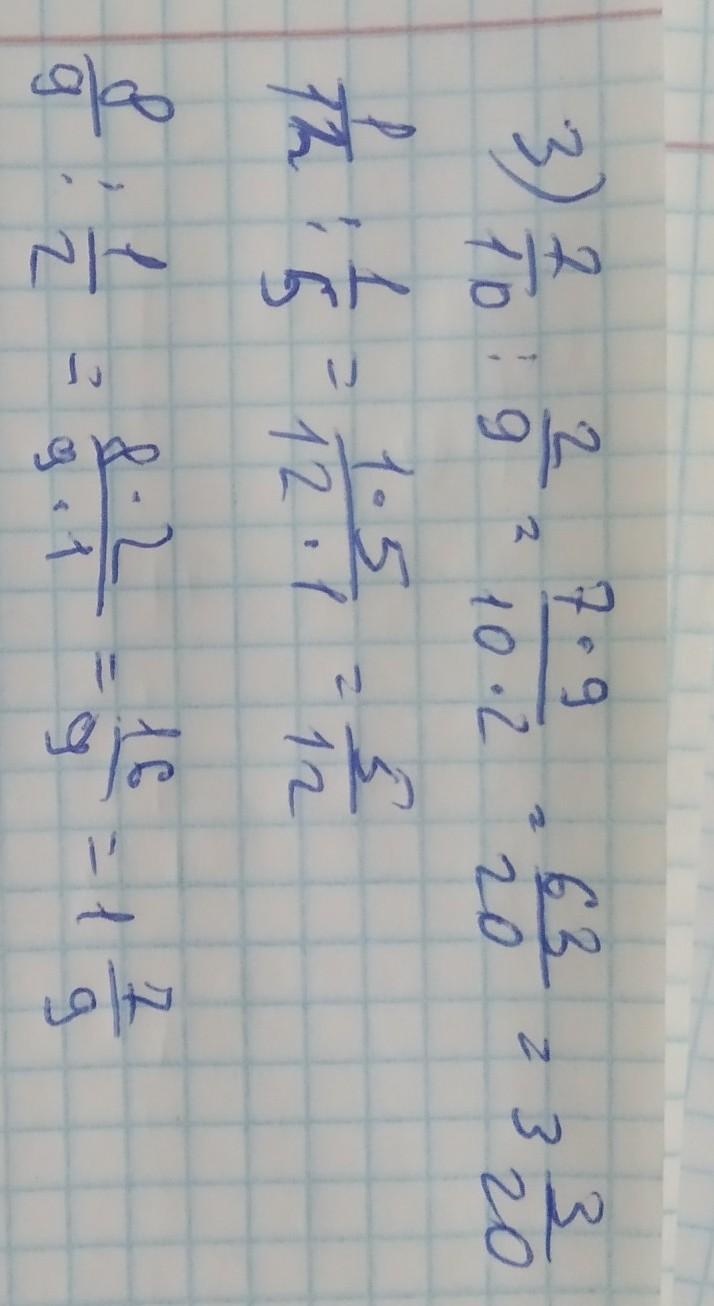 3) 7/10 : 2/9 = 7·9/10·2 = 63/20 = 3 3/20
1/12 : 1/5 = 1·5/12·1 = 5/12
8/9 : 1/2 = 8·2/9·1 = 16/9 = 1 7/9